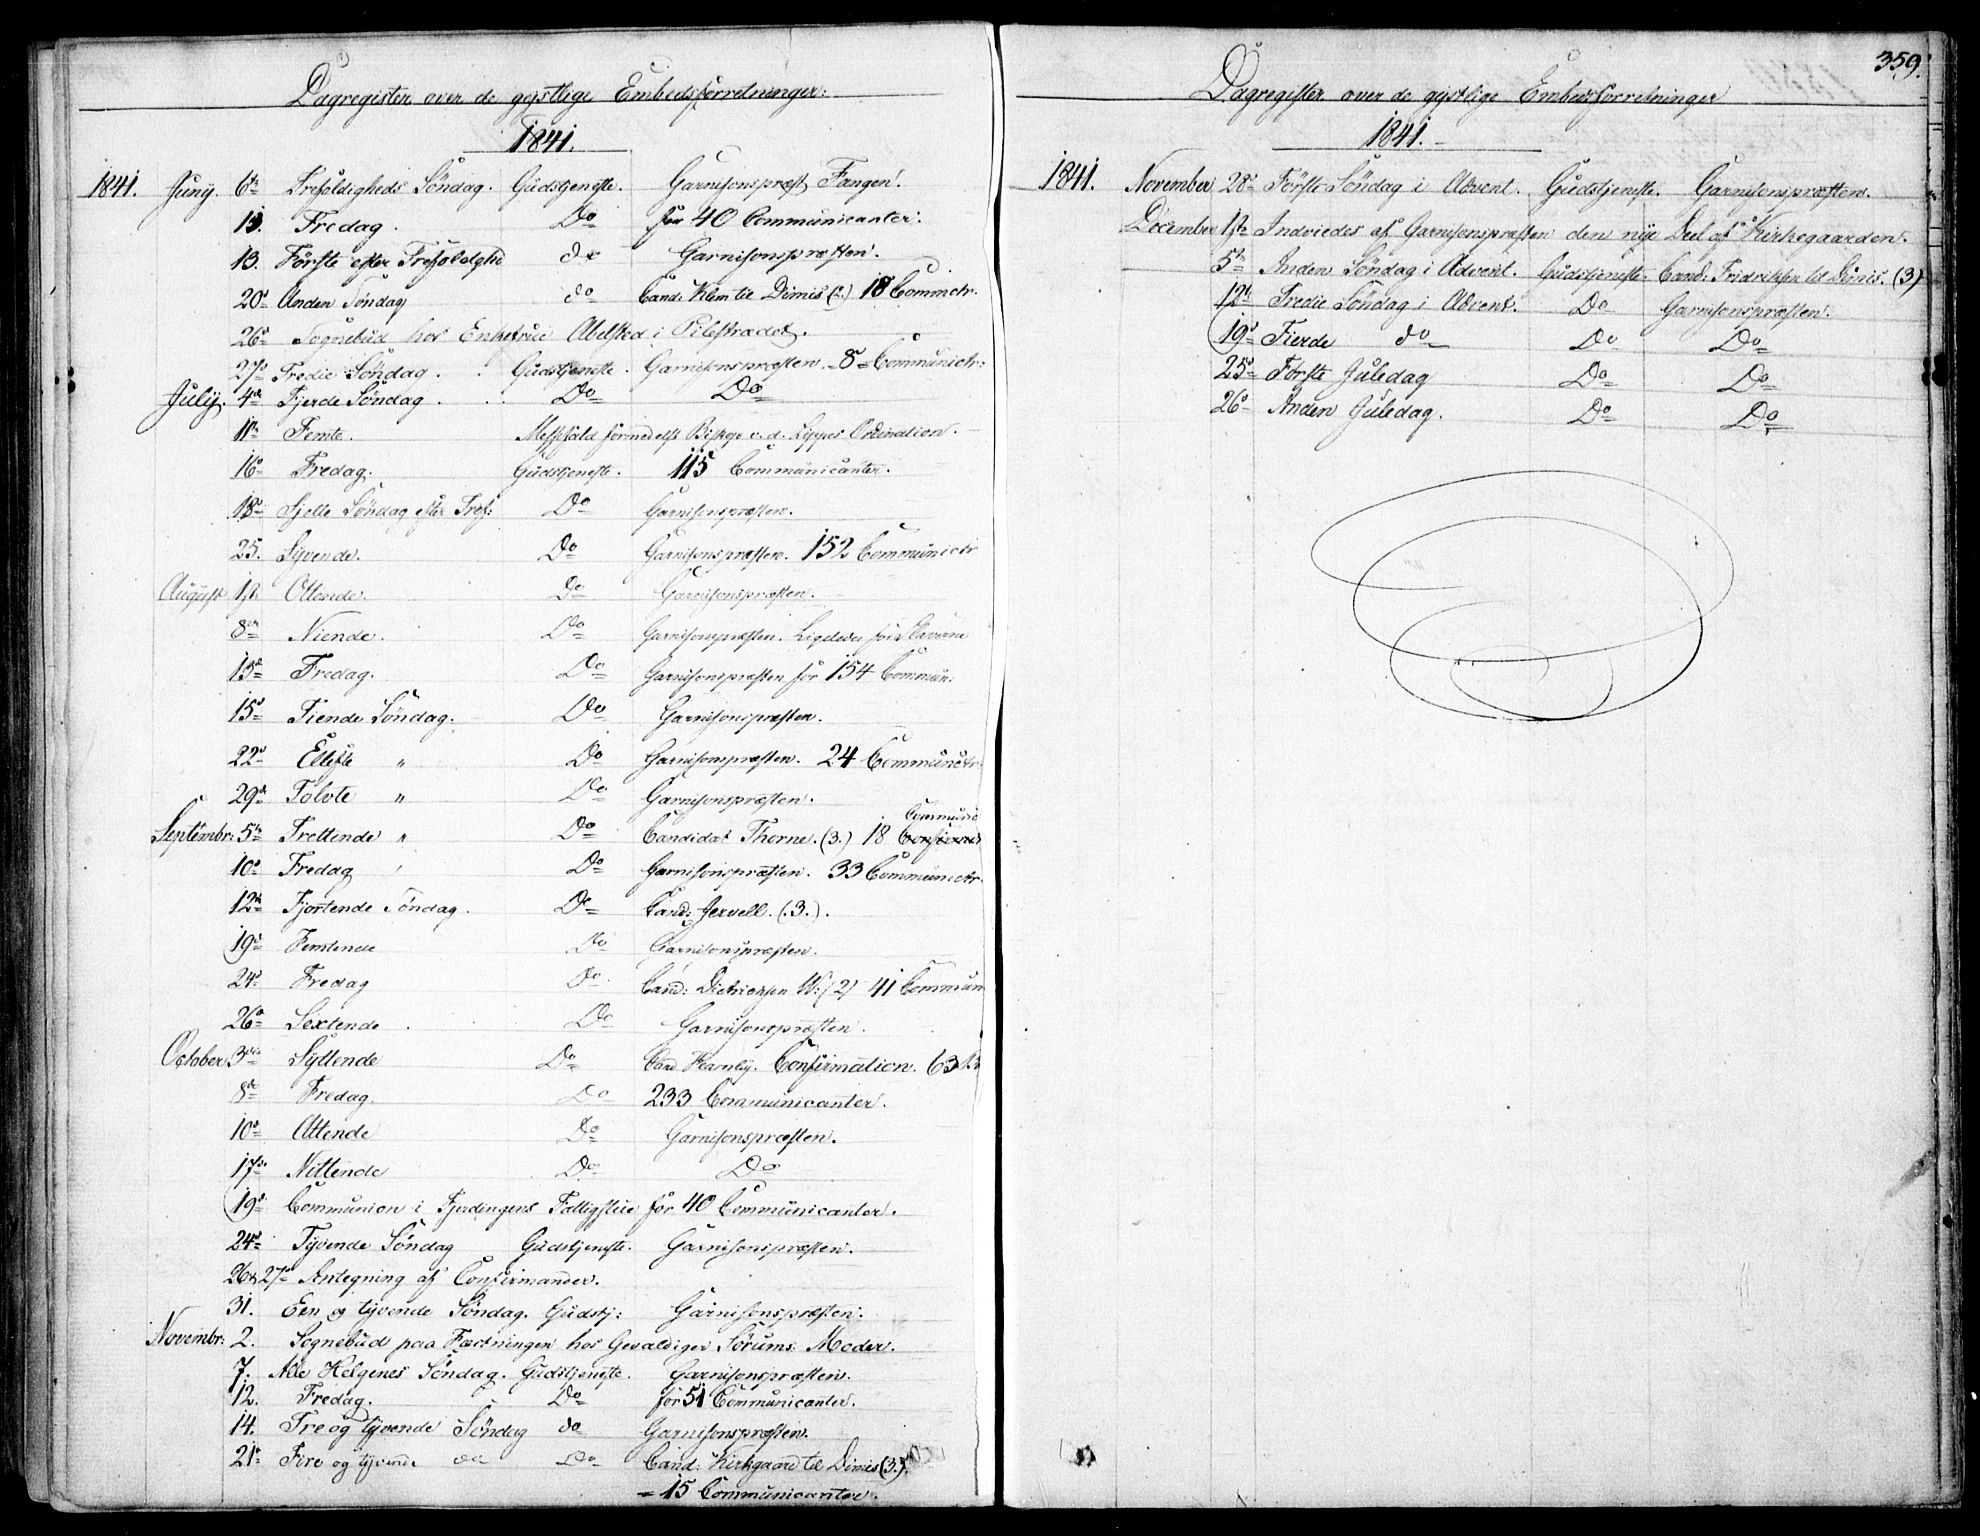 Dagregister over de gejstlige Embedsforretninger:
1841.
1841. Juny. 6te Trefoldigheds Söndag. Gudstjeneste. Garnisonspræst Fangen.
13. Fredag. Do for 40 Communicanter.
13. Förste efter Trefoldighd do Garnisonspræsten.
20de Anden Söndag do Cand: Klem til Dimis (2.) 18 Commctr.
26de Sognebud hos Enkefrue Abelsted i Pilestrædet.
27de Tredie Söndag. Gudstjeneste. Garnisonspræsten. - 8 - Communictr:
July. 4de Fjerde Söndag. Do Do
11te Femte. Messefald formedelst Biskop v. d. Lippes Ordination.
16de Fredag. Gudstjeneste. 115 Communicanter.
18de Sjette Söndag efter Tref: Do Garnisonspræsten.
25. Syvende. Do Garnisonspræsten. 152 Communictr
August 1ste Ottende. Do Garnisonspræsten.
8de Niende. Do Garnisonspræsten. Ligeledes for Slaverne
13de Fredag. Do Garnisonspræsten for 154 Commun:
15de Tiende Söndag. Do Garnisonspræsten.
22de Ellefte " Do Garnisonspræsten. 24 Communctr.
29de Tolvte " Do Garnisonspræsten.
Communic
Septembr: 5te Trettende " Do Candidat Thorne. (3.) 18 Confirand
10de Fredag Do Garnisonspræsten. 33 Communictr.
12te Fjortende Söndag. Do Cand: Jervell. (.3.).
19de Femtende Do Garnisonspræsten.
24de Fredag Do Cand: Dietrichsen W: (2) 41 Commun
26de Sextende Do Garnisonspræsten.
October 3die Syttende Do Cand Fearnley. Confirmation. 63
8de Fredag. Do 233 Communicanter.
10de Attende Do Garnisonspræsten.
17de Nittende Do Do
19de Communion i Fjerdingens Fattigstue for 40 Communicanter.
24de Tyvende Söndag Gudstjeneste. Garnisonspræsten.
26 & 27de Antegning af Confirmander.
31. Een og tyvende Söndag. Gudstj: Garnisonspræsten.
Novembr: 2. Sognebud paa Fæstningen hos Gevaldiger Sörums Moder.
7. Alle Helgenes Söndag. Gudstjeneste. Garnisonspræsten.
12. Fredag. Do for 51 Communicanter.
14. Tre og tyvende Söndag do Garnisonspræsten.
21de Fire og tyvende do Do Cand: Kirkgaard til Dimis (3.).
= 15 Communicanter.
359.
Dagregister over de gejstlige Embedsforretninger
1841. -
1841. November 28de Förste Söndag i Advent. Gudstjeneste. Garnisonspræsten.
December 1ste Indviedes af Garnisonspræsten den nye Deel af Kirkegaarden.
5te Anden Söndag i Advent. Gudstjeneste. Cand: Fridrichsen til Dimis. (3)
12te Tredie Söndag i Advent. Do Garnisonspræsten.
19de Fierde do Do Do
25de Förste Juledag Do Do
26de Anden Juledag. Do Do